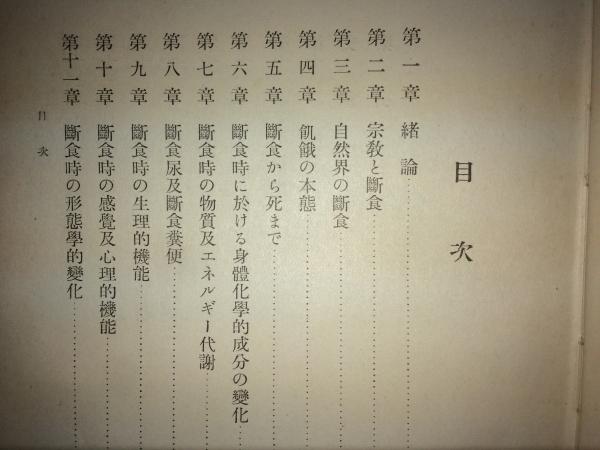 目次
第一章 緒論
第二章 宗教と斷食
第三章 自然界の斷食
第四章 飢餓の本態
第五章 斷食から死まで
第六章 斷食時に於ける身體化學的成分の變化
第七章 斷食時の物質及エネルギー代謝
第八章 斷食尿及斷食糞便
第九章 斷食時の生理的機能
第十章 斷食時の感覺及心理的機能
第十一章 斷食時の形態學的變化
目次